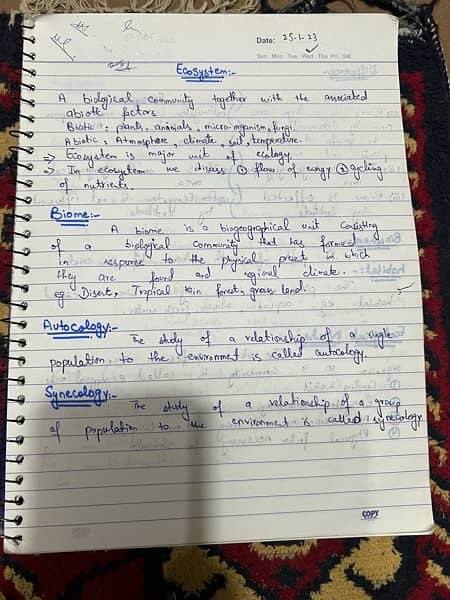 Date: 25-1-23
Sun Mon Tue Wed Thu Fri Sat
Ecosystem:-
A biological community together with the associated
abiotic factors.
Biotic: plants, animals, micro-organism, fungi.
Abiotic: Atmosphere, climate, soil, temperature.
=> Ecosystem is major unit of ecology.
=> In ecosystem we discuss ① flow of energy ② cycling
of nutrients.
Biome:-
A biome is a biogeographical unit consisting
of a biological community that has formed
in response to the physical in which
they are found and regional climate.
eg: Disert, Tropical rain forest, grass land.
Autocology:-
The study of a relationship of a single
population to the environment is called autocology.
Synecology:-
The study of a relationship of a group
of population to the environment is called synecology.
COPY